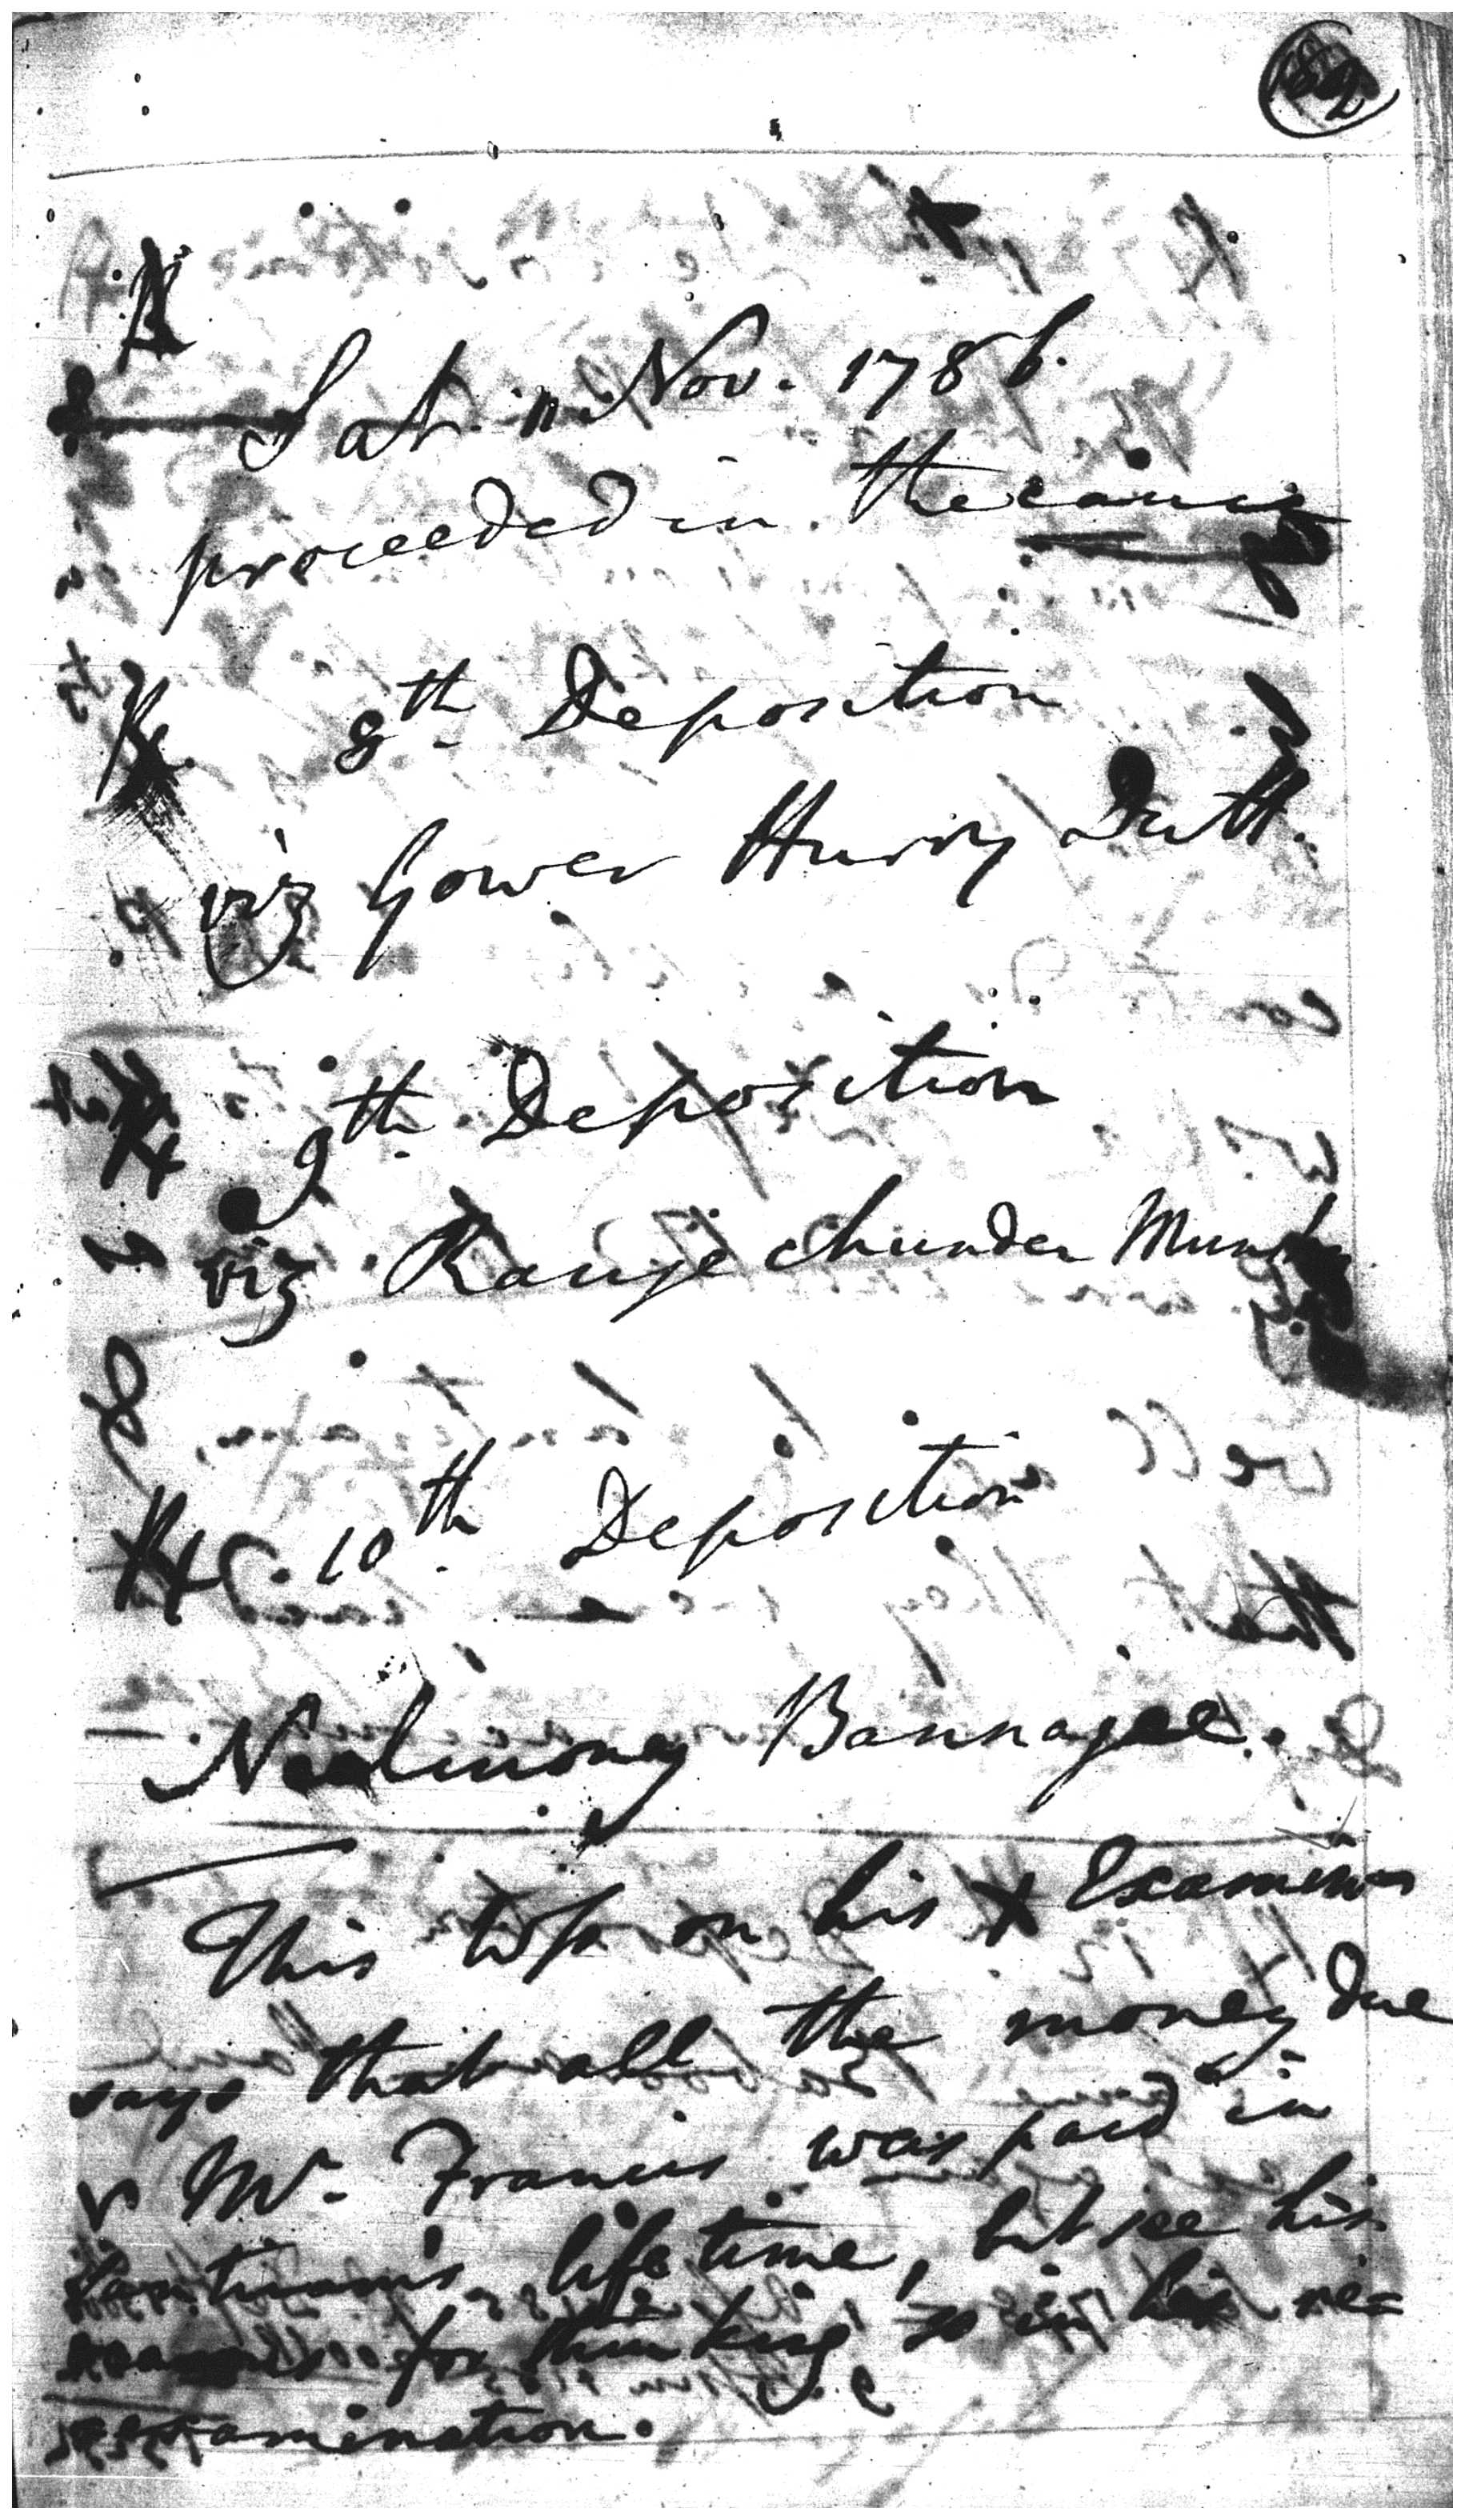 Sat. 11 Nov. 1786.
proceeded in the cause
8th Deposition
viz Gower Hurry Dutt.
9th Deposition
viz chunder
10th Deposition
Neelmoney Bannajee.
This Wss on his X Examinon
says that all the money due
Mr. Francis was paid in
life time, but see his
reasons for thinking so in his re=
examination.